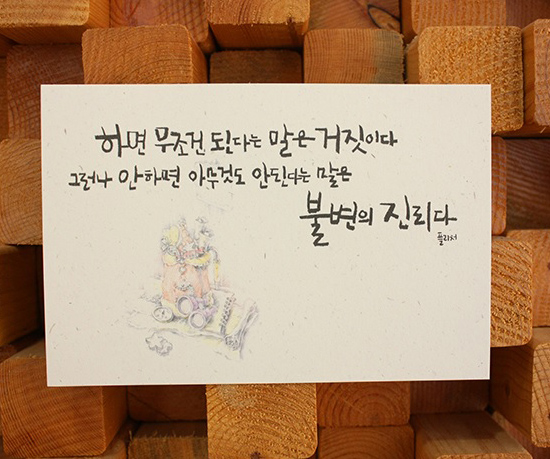 하면 무조건 된다는 말은 거짓이다
그러나 안하면 아무것도 안된다는 말은
불변의 진리다